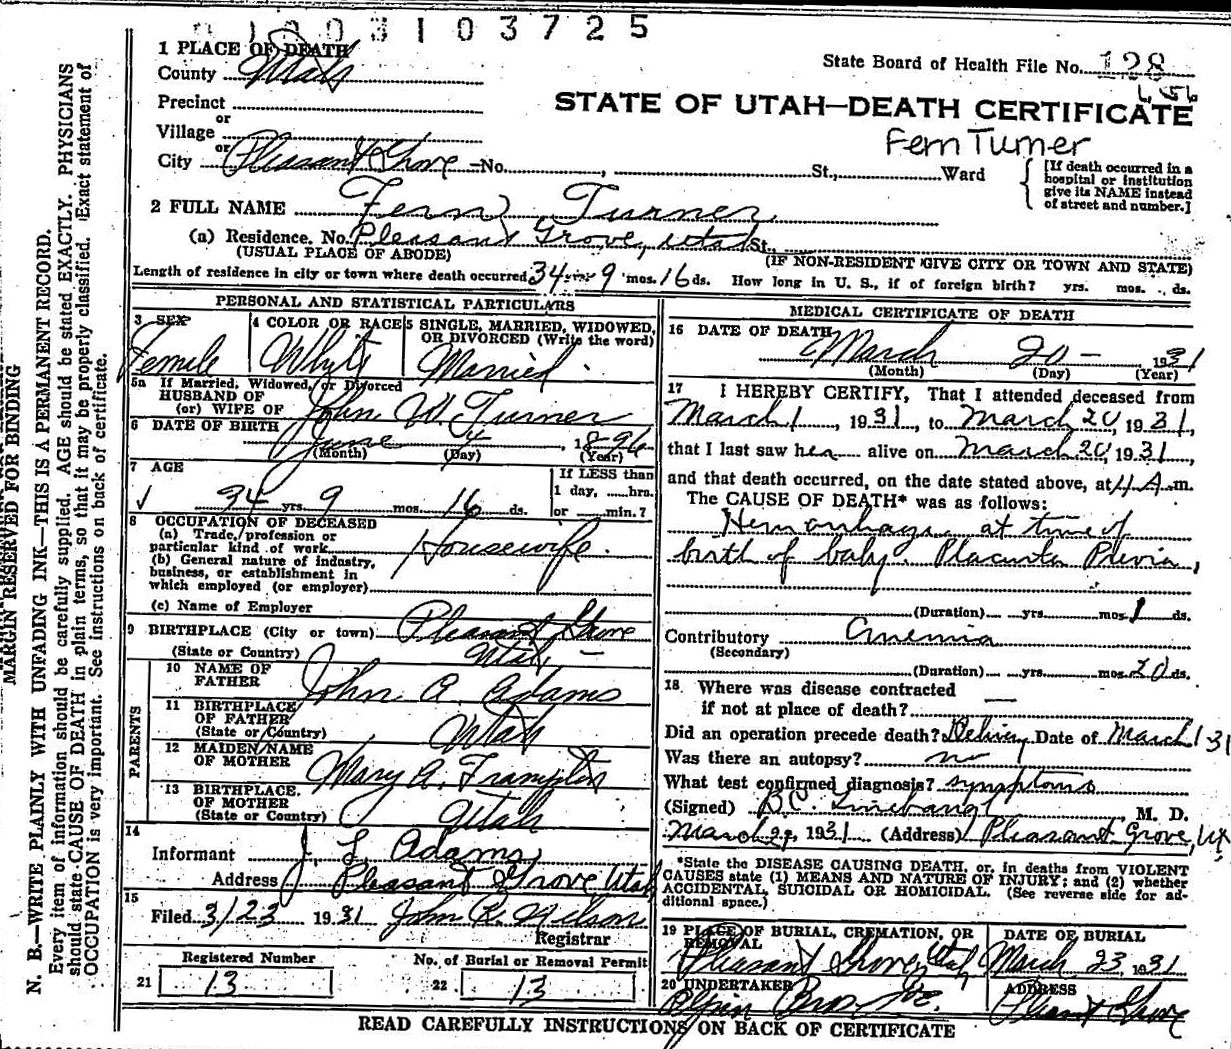 1 0 0 3 1 0 3 7 2 5
1 PLACE OF DEATH
State Board of Health File No. 128
County Utah
Precinct
STATE OF UTAH—DEATH CERTIFICATE
or
Village
Fern Turner
or
City Pleasant Grove —No. , St., Ward
[If death occurred in a hospital or institution give its NAME instead of street and number.]
2 FULL NAME Fern Turner
(a) Residence. No. Pleasant Grove, Utah St.,
(USUAL PLACE OF ABODE) (IF NON-RESIDENT GIVE CITY OR TOWN AND STATE)
Length of residence in city or town where death occurred 34 yrs. 9 mos. 16 ds. How long in U. S., if of foreign birth? yrs. mos. ds.
PERSONAL AND STATISTICAL PARTICULARS
3 SEX Female
4 COLOR OR RACE White
5 SINGLE, MARRIED, WIDOWED, OR DIVORCED (Write the word) Married
5a If Married, Widowed, or Divorced
HUSBAND OF
(or) WIFE OF John W. Turner
6 DATE OF BIRTH June 4 1896
(Month) (Day) (Year)
7 AGE
34 yrs. 9 mos. 16 ds.
If LESS than
1 day, hrs.
or min.?
8 OCCUPATION OF DECEASED
(a) Trade, profession or
particular kind of work Housewife.
(b) General nature of industry,
business, or establishment in
which employed (or employer)
(c) Name of Employer
9 BIRTHPLACE (City or town) Pleasant Grove
(State or Country) Utah
PARENTS
10 NAME OF
FATHER John A. Adams
11 BIRTHPLACE
OF FATHER
(State or Country) Utah
12 MAIDEN NAME
OF MOTHER Mary A. Frampton
13 BIRTHPLACE.
OF MOTHER
(State or Country) Utah
14
Informant J. L. Adams
Address Pleasant Grove Utah
15
Filed 3/23 1931 John R. Wilson
Registrar
Registered Number
21 13
No. of Burial or Removal Permit
22 13
MEDICAL CERTIFICATE OF DEATH
16 DATE OF DEATH
March 20 — 1931
(Month) (Day) (Year)
17 I HEREBY CERTIFY, That I attended deceased from
March 1, 1931, to March 20, 1931,
that I last saw her alive on March 20, 1931,
and that death occurred, on the date stated above, at 4 A.m.
The CAUSE OF DEATH* was as follows:
Hemorrhage at time of
birth of baby. Placenta Previa,
(Duration) yrs. mos. 1 ds.
Contributory Anemia
(Secondary)
(Duration) yrs. mos. 20 ds.
18 Where was disease contracted
if not at place of death? —
Did an operation precede death? Delivery Date of March 1 31
Was there an autopsy? no
What test confirmed diagnosis? symptoms
(Signed) B.C. Linebaugh M. D.
March 22, 1931 (Address) Pleasant Grove, Ut
*State the DISEASE CAUSING DEATH, or, in deaths from VIOLENT
CAUSES state (1) MEANS AND NATURE OF INJURY; and (2) whether
ACCIDENTAL, SUICIDAL OR HOMICIDAL. (See reverse side for ad-
ditional space.)
19 PLACE OF BURIAL, CREMATION, OR
REMOVAL
Pleasant Grove, Utah
DATE OF BURIAL
March 23, 1931
20 UNDERTAKER
Bros
ADDRESS
Pleasant Grove
READ CAREFULLY INSTRUCTIONS ON BACK OF CERTIFICATE
MARGIN RESERVED FOR BINDING
N. B.—WRITE PLAINLY WITH UNFADING INK—THIS IS A PERMANENT RECORD.
Every item of information should be carefully supplied. AGE should be stated EXACTLY. PHYSICIANS
should state CAUSE OF DEATH in plain terms, so that it may be properly classified. Exact statement of
OCCUPATION is very important. See instructions on back of certificate.